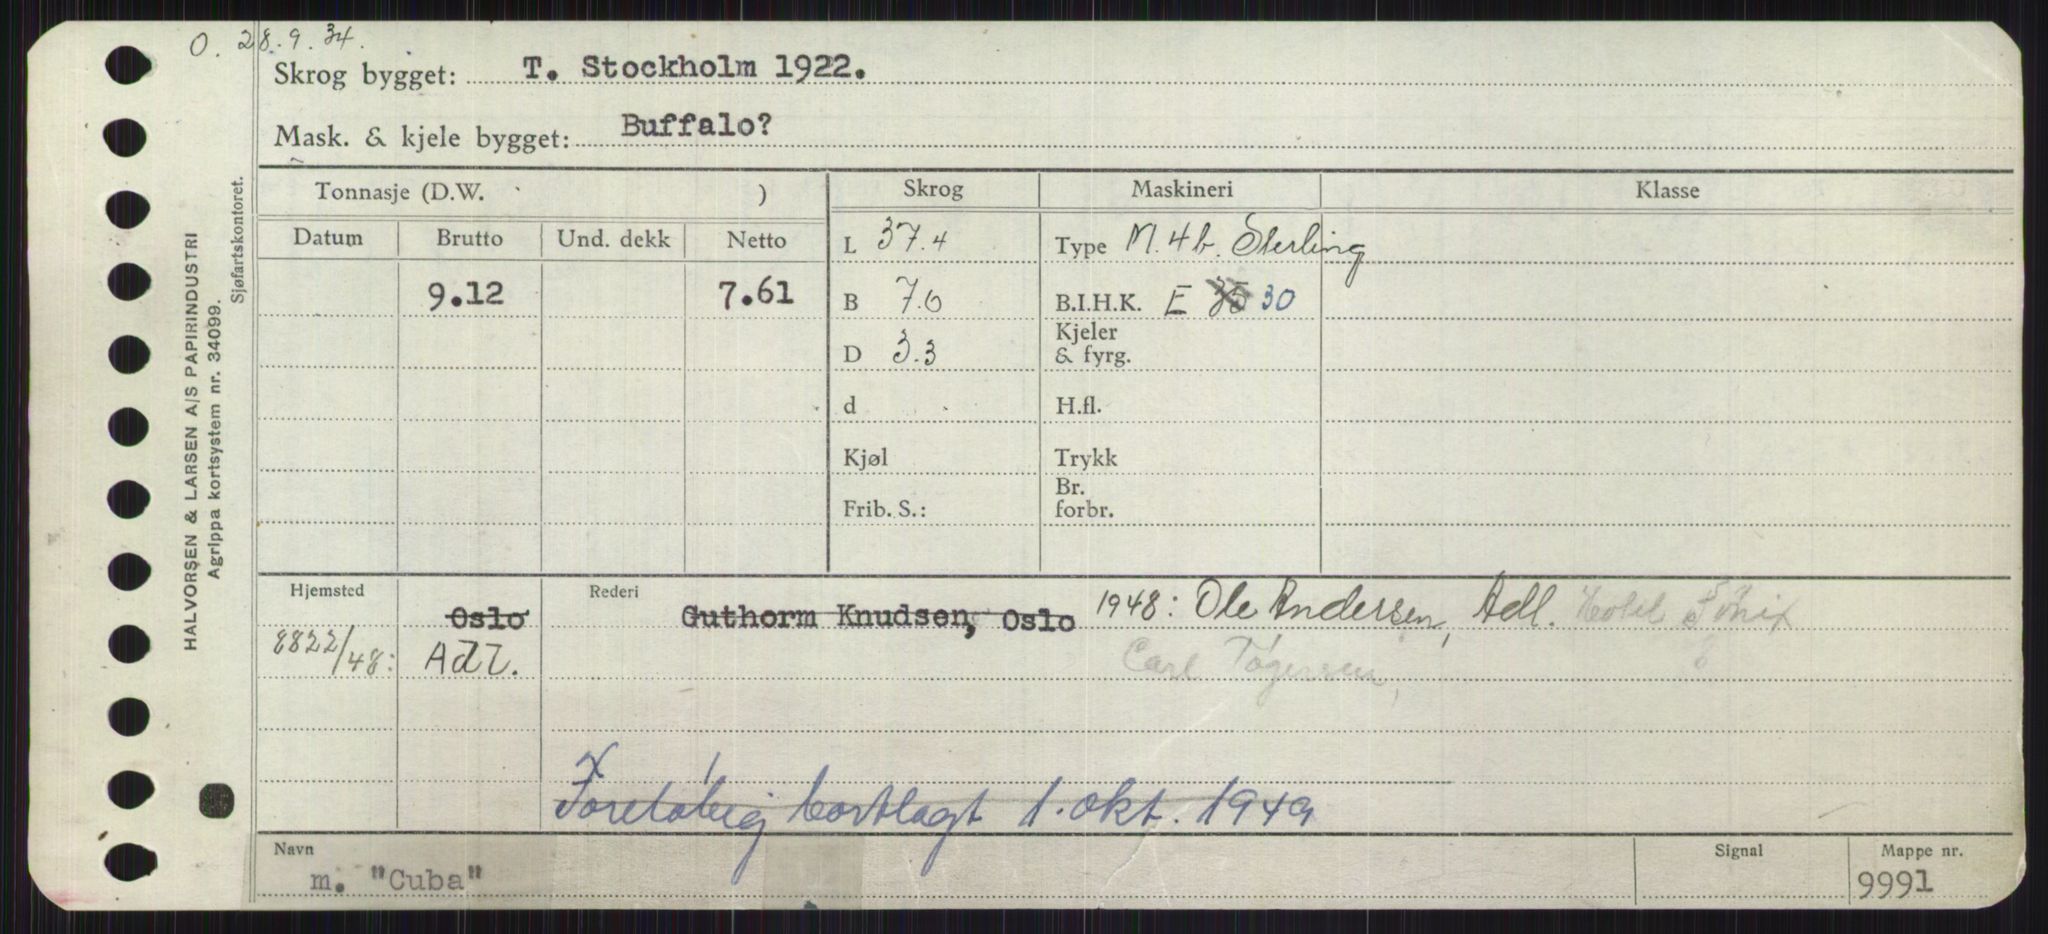 O. 28.9.34.
Skrog bygget: T. Stockholm 1922.
Mask. & kjele bygget: Buffalo?
Tonnasje (D.W. )
Skrog
Maskineri
Klasse
Datum Brutto Und. dekk Netto
L 37.4
Type M. 4b. Sterling
9.12 7.61
B 7.6
B.I.H.K. E 30
Kjeler
& fyrg.
D 3.3
d
H.fl.
Kjøl
Trykk
Br.
forbr.
Frib. S.:
Hjemsted
Rederi
Oslo
Guthorm Knudsen, Oslo 1948: Ole Andersen, Adl. Hotel Fønix
8822/48: Adl.
Carl
Foreløbig bortlagt 1. okt. 1949
Navn
m. "Cuba"
Signal
Mappe nr.
9991
HALVORSEN & LARSEN A/S PAPIRINDUSTRI
Agrippa kortsystem nr. 34099.
Sjøfartskontoret.